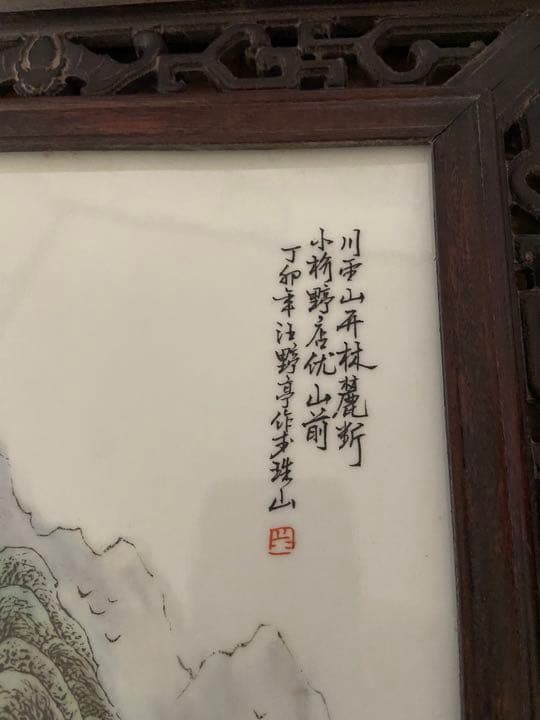 川平山开林麓断
小桥野店优山前
丁卯年汪野亭作于珠山